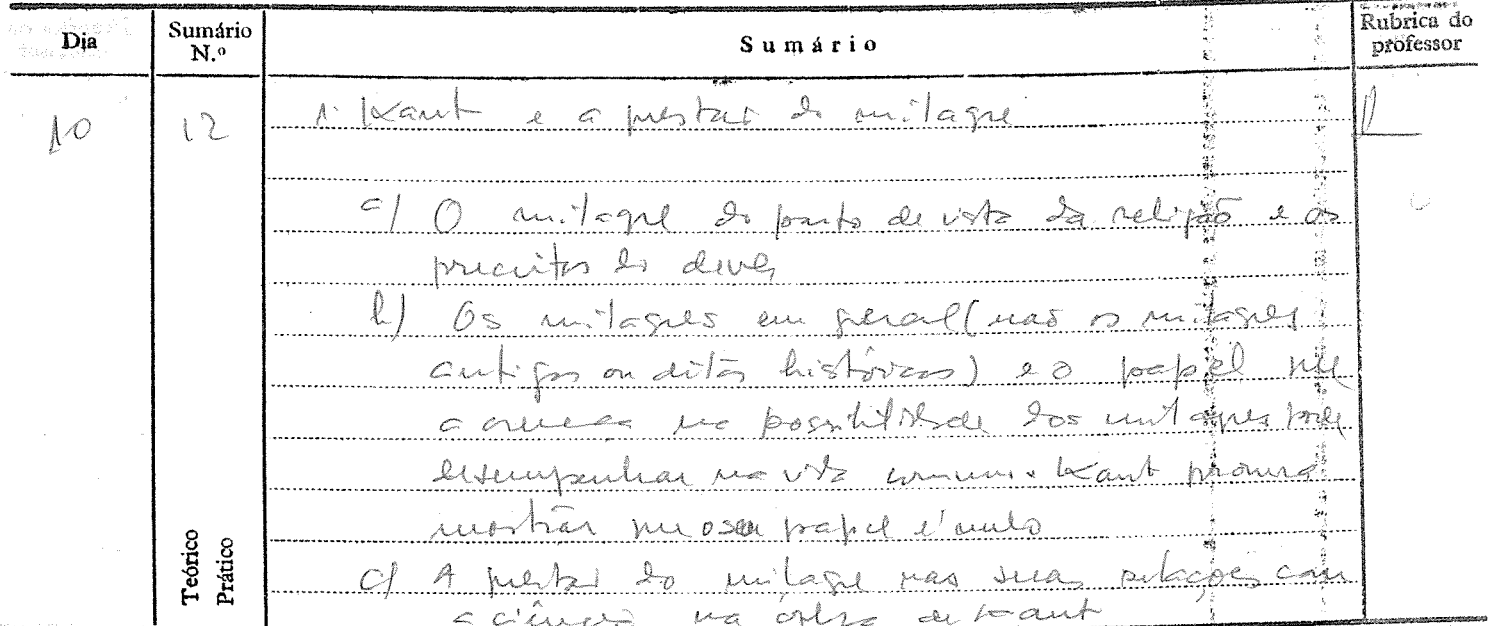 Dia
Sumário N.º
Sumário
Rubrica do professor
10
12
1. Kant e a questão do milagre
a) O milagre do ponto de vista da religião e os
preceitos do dever
b) Os milagres em geral (não os milagres
antigos ou ditos históricos) e o papel que
a crença na possibilidade dos milagres pode
desempenhar na vida comum. Kant procura
mostrar que o seu papel é nulo
c) A questão do milagre nas suas relações com
a ciência na obra de Kant
Teórico
Prático